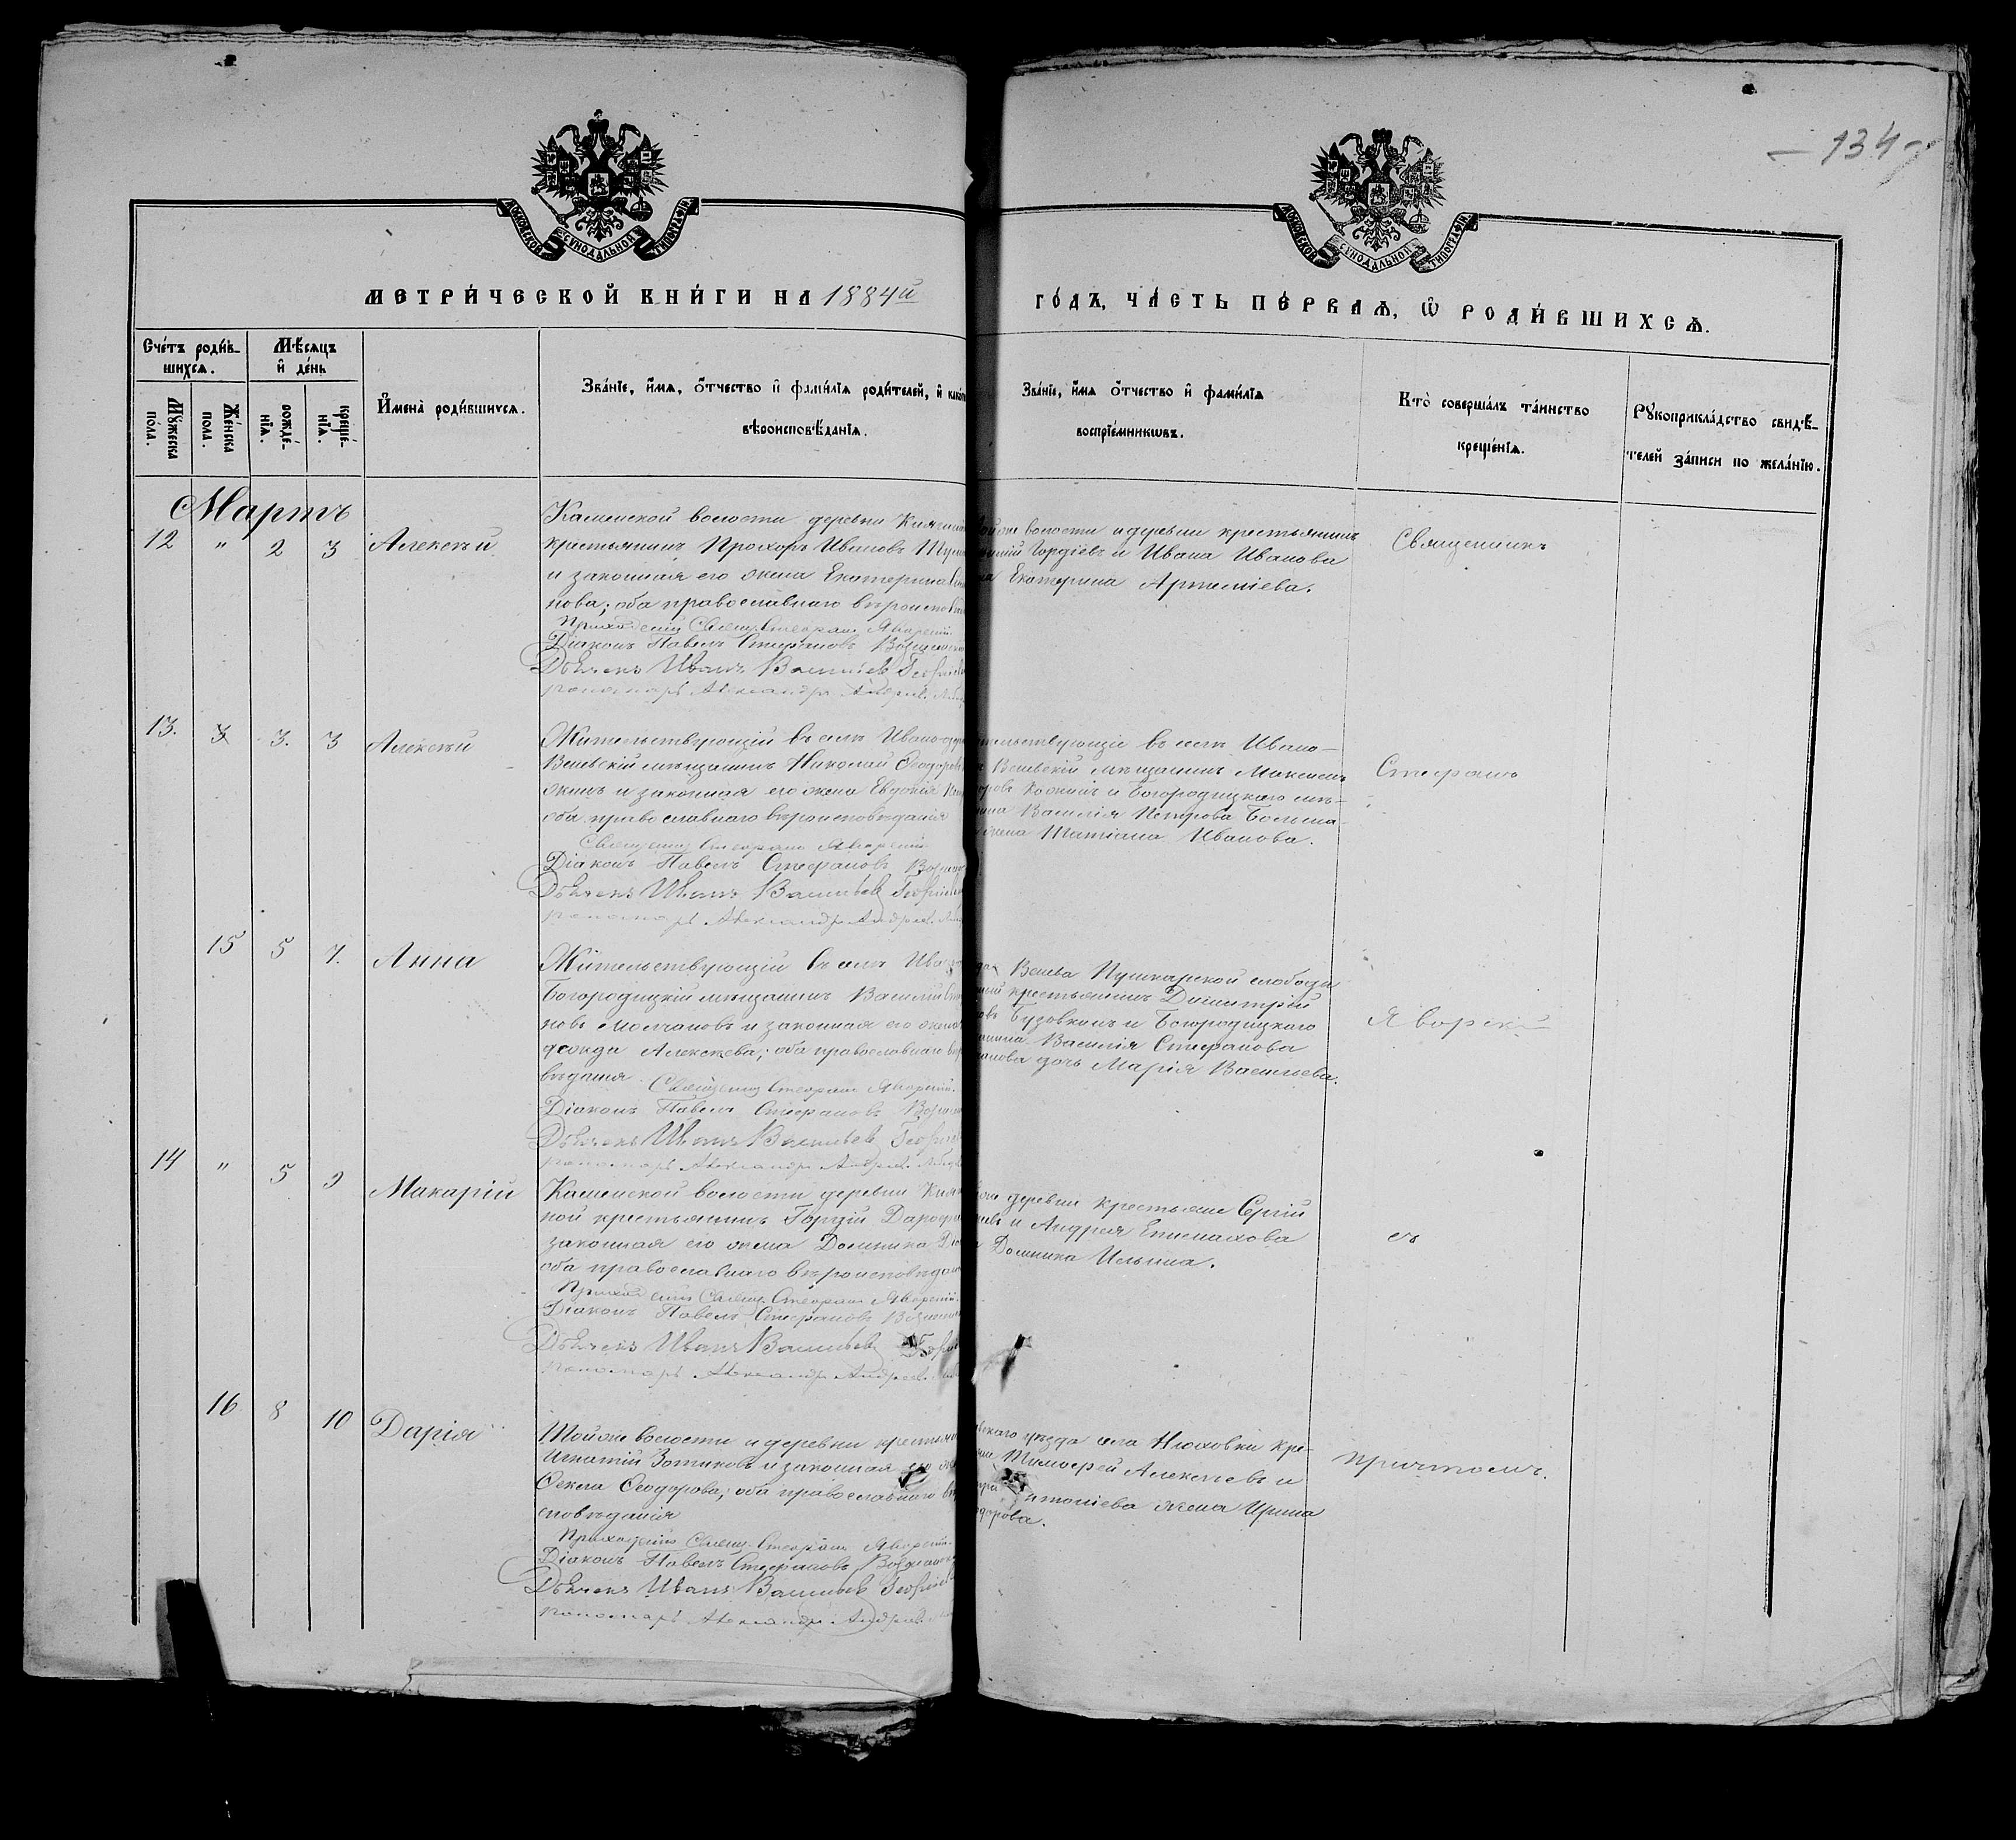 134
МОСКОВСКОЙ СѴНОДАЛЬНОЙ ТИПОГРАФІИ
МОСКОВСКОЙ СѴНОДАЛЬНОЙ ТИПОГРАФІИ
МЕТРИ́ЧЕСКОЙ КНИ́ГИ НА 1884й
ГО́ДЪ, ЧА́СТЬ ПЕ́РВАѦ, Ѡ РОДИ́ВШИХСѦ.
Сче́тъ роди́в-
шихсѧ.
Мꙋ́жеска по́ла.
Же́нска пола.
Мѣ́сѧцъ и҆ де́нь
рожде́-
нїѧ.
креще́-
нїѧ.
И҆мена̀ роди́вшихсѧ.
Зва́нїе, и҆́мѧ, ѻ҆́тчество и҆ фами́лїѧ роди́телей, и҆ како́
вѣроисповѣ́данїѧ.
Зва́нїе, и҆́мѧ ѻ҆́тчество и҆ фами́лїѧ
воспрїе́мникѡвъ.
Кто̀ соверша́лъ та́инство
креще́нїѧ.
Рꙋкоприкла́дство свидѣ́-
телей за́писи по жела́нїю.
Мартъ
12 " 2 3 Алексѣй
Каменской волости деревни
крестьянинъ Прохоръ Ивановъ
и законная его жена Екатерина
нова; оба православнаго вѣроиспов
Приходскій Свящ. Стефанъ Яворскій.
Діаконъ Павелъ Стефановъ
Дьячекъ Иванъ Васильевъ
пономарь Александръ Андреев.
волости и деревни крестьянинъ
Гордіевъ и Ивана Иванова
Екатерина Артеміева.
Священникъ
13. 3 3 Алексѣй
Жительствующій въ селѣ Ивано-
Веневскій мѣщанинъ Николай Ѳеодоров
жинъ и законная его жена Евдокія
оба православнаго вѣроисповѣданія
Священник Стефанъ Яворскій
Діаконъ Павелъ Стефановъ
Дьячекъ Иванъ Васильевъ
пономарь Александръ Андреев.
тельствующіе въ селѣ Ивано-
Веневскій мѣщанинъ Максимъ
и Богородицкаго мѣ-
нина Василія Петрова
жена Татіана Иванова.
Стефанъ
15 5 7. Анна
Жительствующій въ селѣ Ива
Богородицкій мѣщанинъ Василій
новъ Молчановъ и законная его жена
Алексѣева; оба православнаго
вѣданія
Священник Стефанъ Яворскій.
Діаконъ Павелъ Стефановъ
Дьячекъ Иванъ Васильевъ
пономарь Александръ Андреев.
Венева Пушкарской слободы
крестьянинъ Димитрій
Бузовкинъ и Богородицкаго
нина Василія Стефанова
чанова дочь Марія Васильева.
Яворскій
14 " 5 9 Макарій
Каменской волости деревни
ной крестьянинъ Гордій
законная его жена Домника
оба православнаго вѣроисповѣдан
Приходскій Свящ. Стефанъ Яворскій.
Діаконъ Павелъ Стефановъ
Дьячекъ Иванъ Васильевъ
пономарь Александръ Андреев.
деревни крестьяне Сергій
и Андрея Епимахова
Домника Ильина.
съ
16 8 10 Дарія
Тойже волости и деревни крестьян
Игнатій Зотиковъ и законная его
Ѳекла Ѳеодорова; оба православнаго
сповѣданія
Приходскій Свящ. Стефанъ Яворскій.
Діаконъ Павелъ Стефановъ
Дьячекъ Иванъ Васильевъ
пономарь Александръ Андреев.
уѣзда села Нюховки кре-
Тимоѳей Алексѣевъ и
жена Ирина
дорова.
причтомъ.